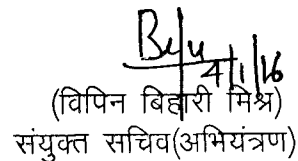 4/1/16
(विपिन बिहारी मिश्र)
संयुक्त सचिव(अभियंत्रण)